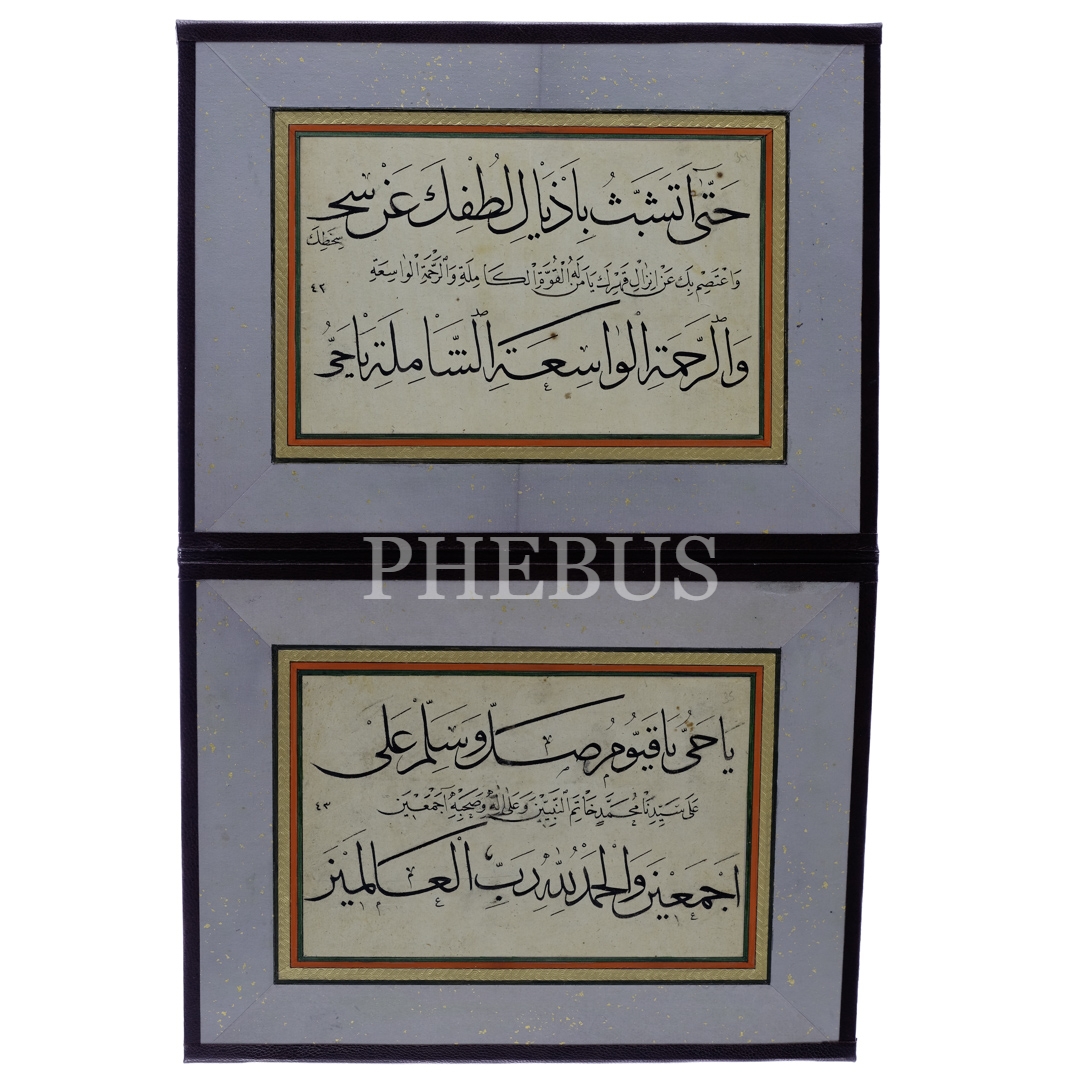 حَتّٰى اَتَشَبَّثَ بِاَذْيَالِ لُطْفِكَ عَنْ سخ
سخطك
وَاَعْتَصِمَ بِكَ عَنْ اِنْزَالِ قَهْرِكَ يَا مَنْ لَهُ الْقُوَّةُ الْكَامِلَةِ وَالرَّحْمَةِ الْوَاسِعَةِ
٤٢
وَالرَّحْمَةِ الْوَاسِعَةِ الشَّامِلَةِ يَا حَىُّ
PHEBUS
يَا حَىُّ يَا قَيُّومُ صَلِّ وَسَلِّمْ عَلٰى
عَلٰى سَيِّدِنَا مُحَمَّدٍ خَاتَمِ النَّبِيّٖنَ وَعَلٰى اٰلِهٖ وَصَحْبِهٖ اَجْمَعٖينَ
٤٣
اَجْمَعٖينَ وَالْحَمْدُ لِلّٰهِ رَبِّ الْعَالَمٖينَ